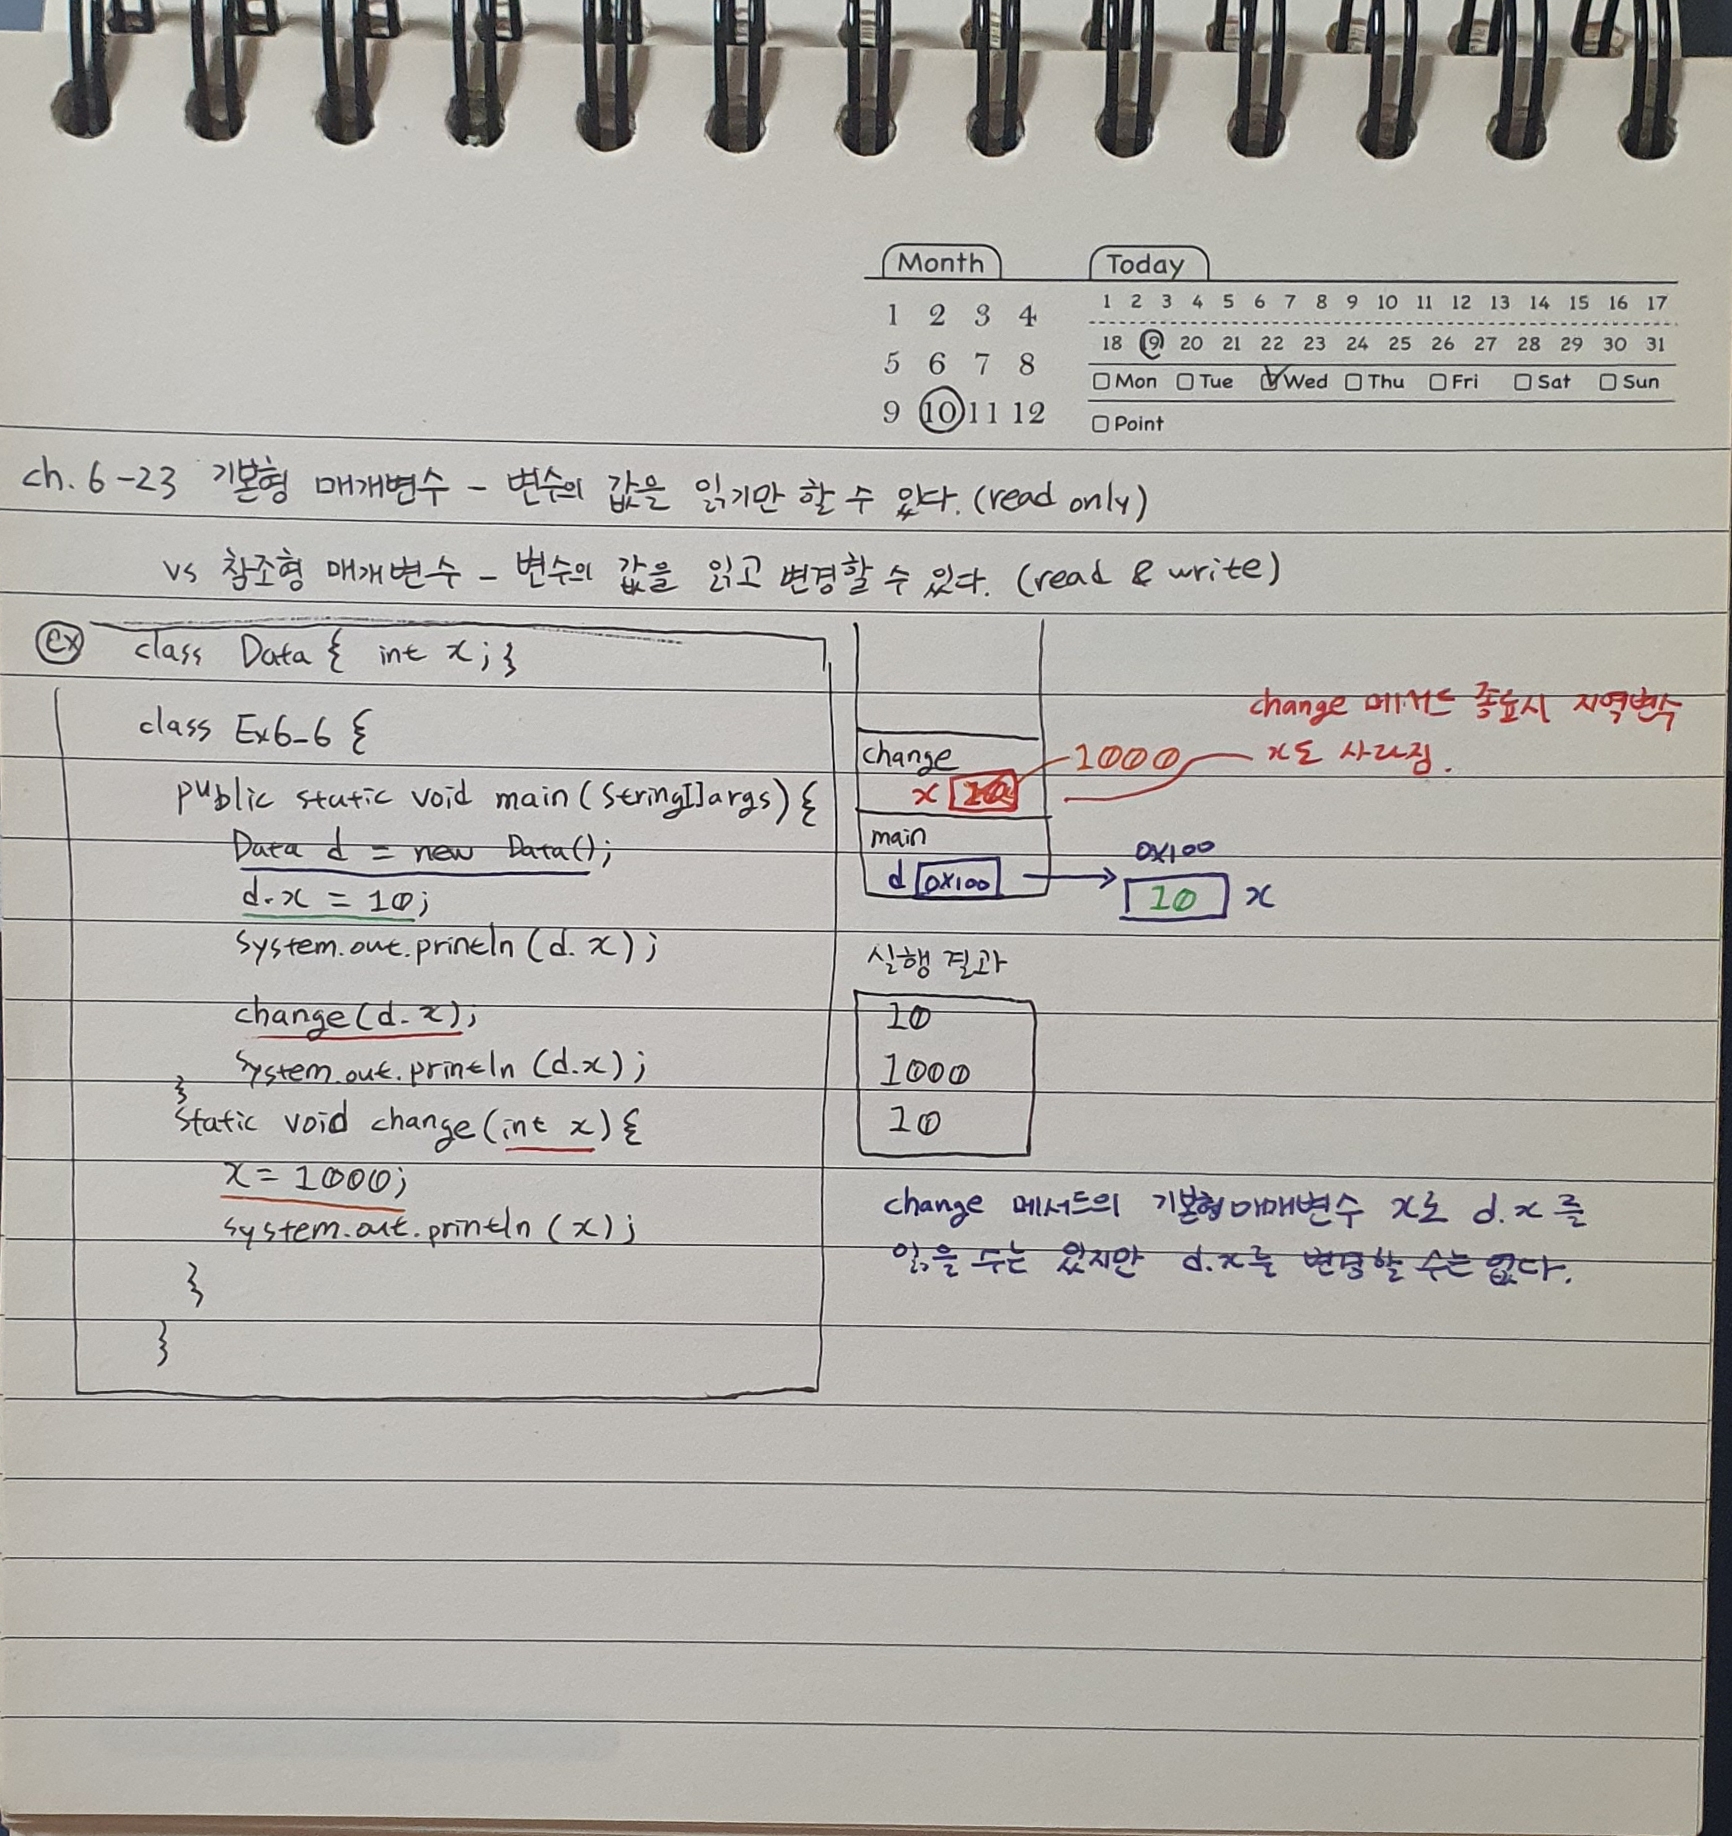 Month
Today
1 2 3 4
5 6 7 8
9 10 11 12
1 2 3 4 5 6 7 8 9 10 11 12 13 14 15 16 17
18 19 20 21 22 23 24 25 26 27 28 29 30 31
Mon Tue Wed Thu Fri Sat Sun
Point
ch. 6-23 기본형 매개변수 - 변수의 값을 읽기만 할 수 있다. (read only)
vs 참조형 매개변수 - 변수의 값을 읽고 변경할 수 있다. (read & write)
ex class Data { int x; }
class Ex6_6 {
public static void main(String[] args) {
Data d = new Data();
d.x = 10;
system.out.println(d.x);
change(d.x);
system.out.println(d.x);
}
static void change(int x) {
x = 1000;
system.out.println(x);
}
}
change
x 10
1000
change 메서드 종료시 지역변수
x도 사라짐.
main
d 0x100
0x100
10 x
실행 결과
10
1000
10
change 메서드의 기본형매개변수 x로 d.x를
읽을 수는 있지만 d.x를 변경할 수는 없다.